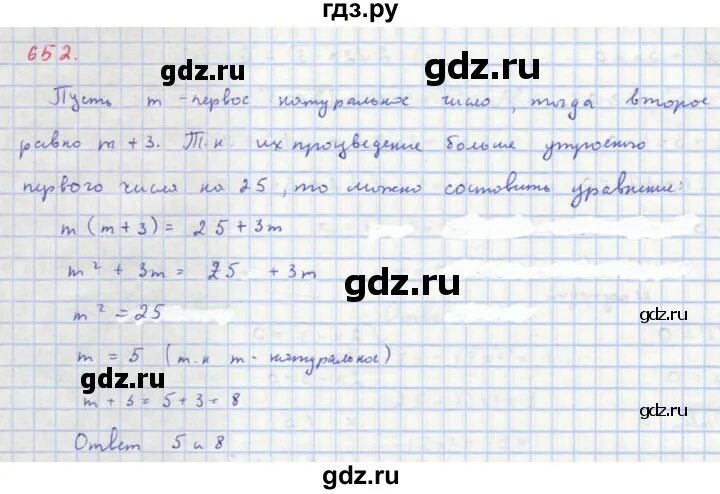 гдз.ру
652.
gdz.ru
gdz.ru
Пусть m - первое натуральное число, тогда второе
равно m + 3. Т.к. их произведение больше утроенного
первого числа на 25, то можно составить уравнение:
m (m + 3) = 25 + 3m
m² + 3m = 25 + 3m
gdz.ru
gdz.ru
m² = 25
m = 5 (т.к m - натуральное)
gdz.ru
gdz.ru
m + 3 = 5 + 3 = 8
Ответ 5 и 8
gdz.ru